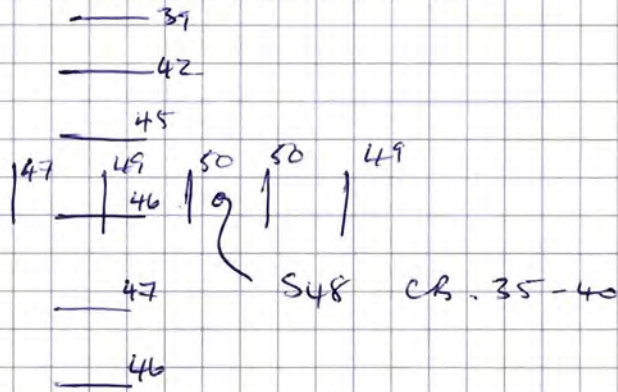 39
42
45
47 49 50 50 49
46
47 S48 CB. 35-40
46